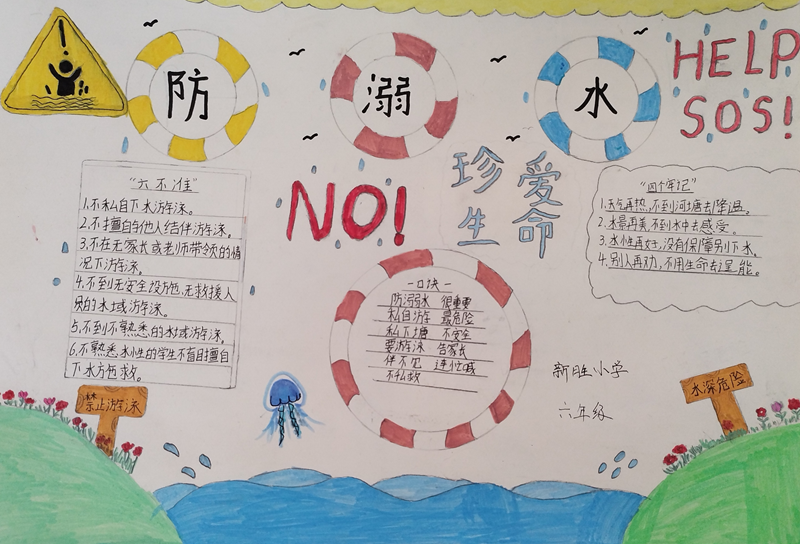 防 溺 水
HELP
SOS!
NO!
珍爱
生命
“六不准”
1.不私自下水游泳。
2.不擅自与他人结伴游泳。
3.不在无家长或老师带领的情
况下游泳。
4.不到无安全设施,无救援人
员的水域游泳。
5.不到不熟悉的水域游泳。
6.不熟悉水性的学生不盲目擅自
下水施救。
“四个牢记”
1.天气再热,不到河塘去降温。
2.水景再美,不到水中去感受。
3.水性再好,没有保障别下水。
4.别人再劝,不用生命去逞能。
一口诀一
防溺水 很重要
私自游 最危险
私下塘 不安全
要游泳 告家长
伴不见 连忙喊
不私救
新胜小学
六年级
禁止游泳
水深危险